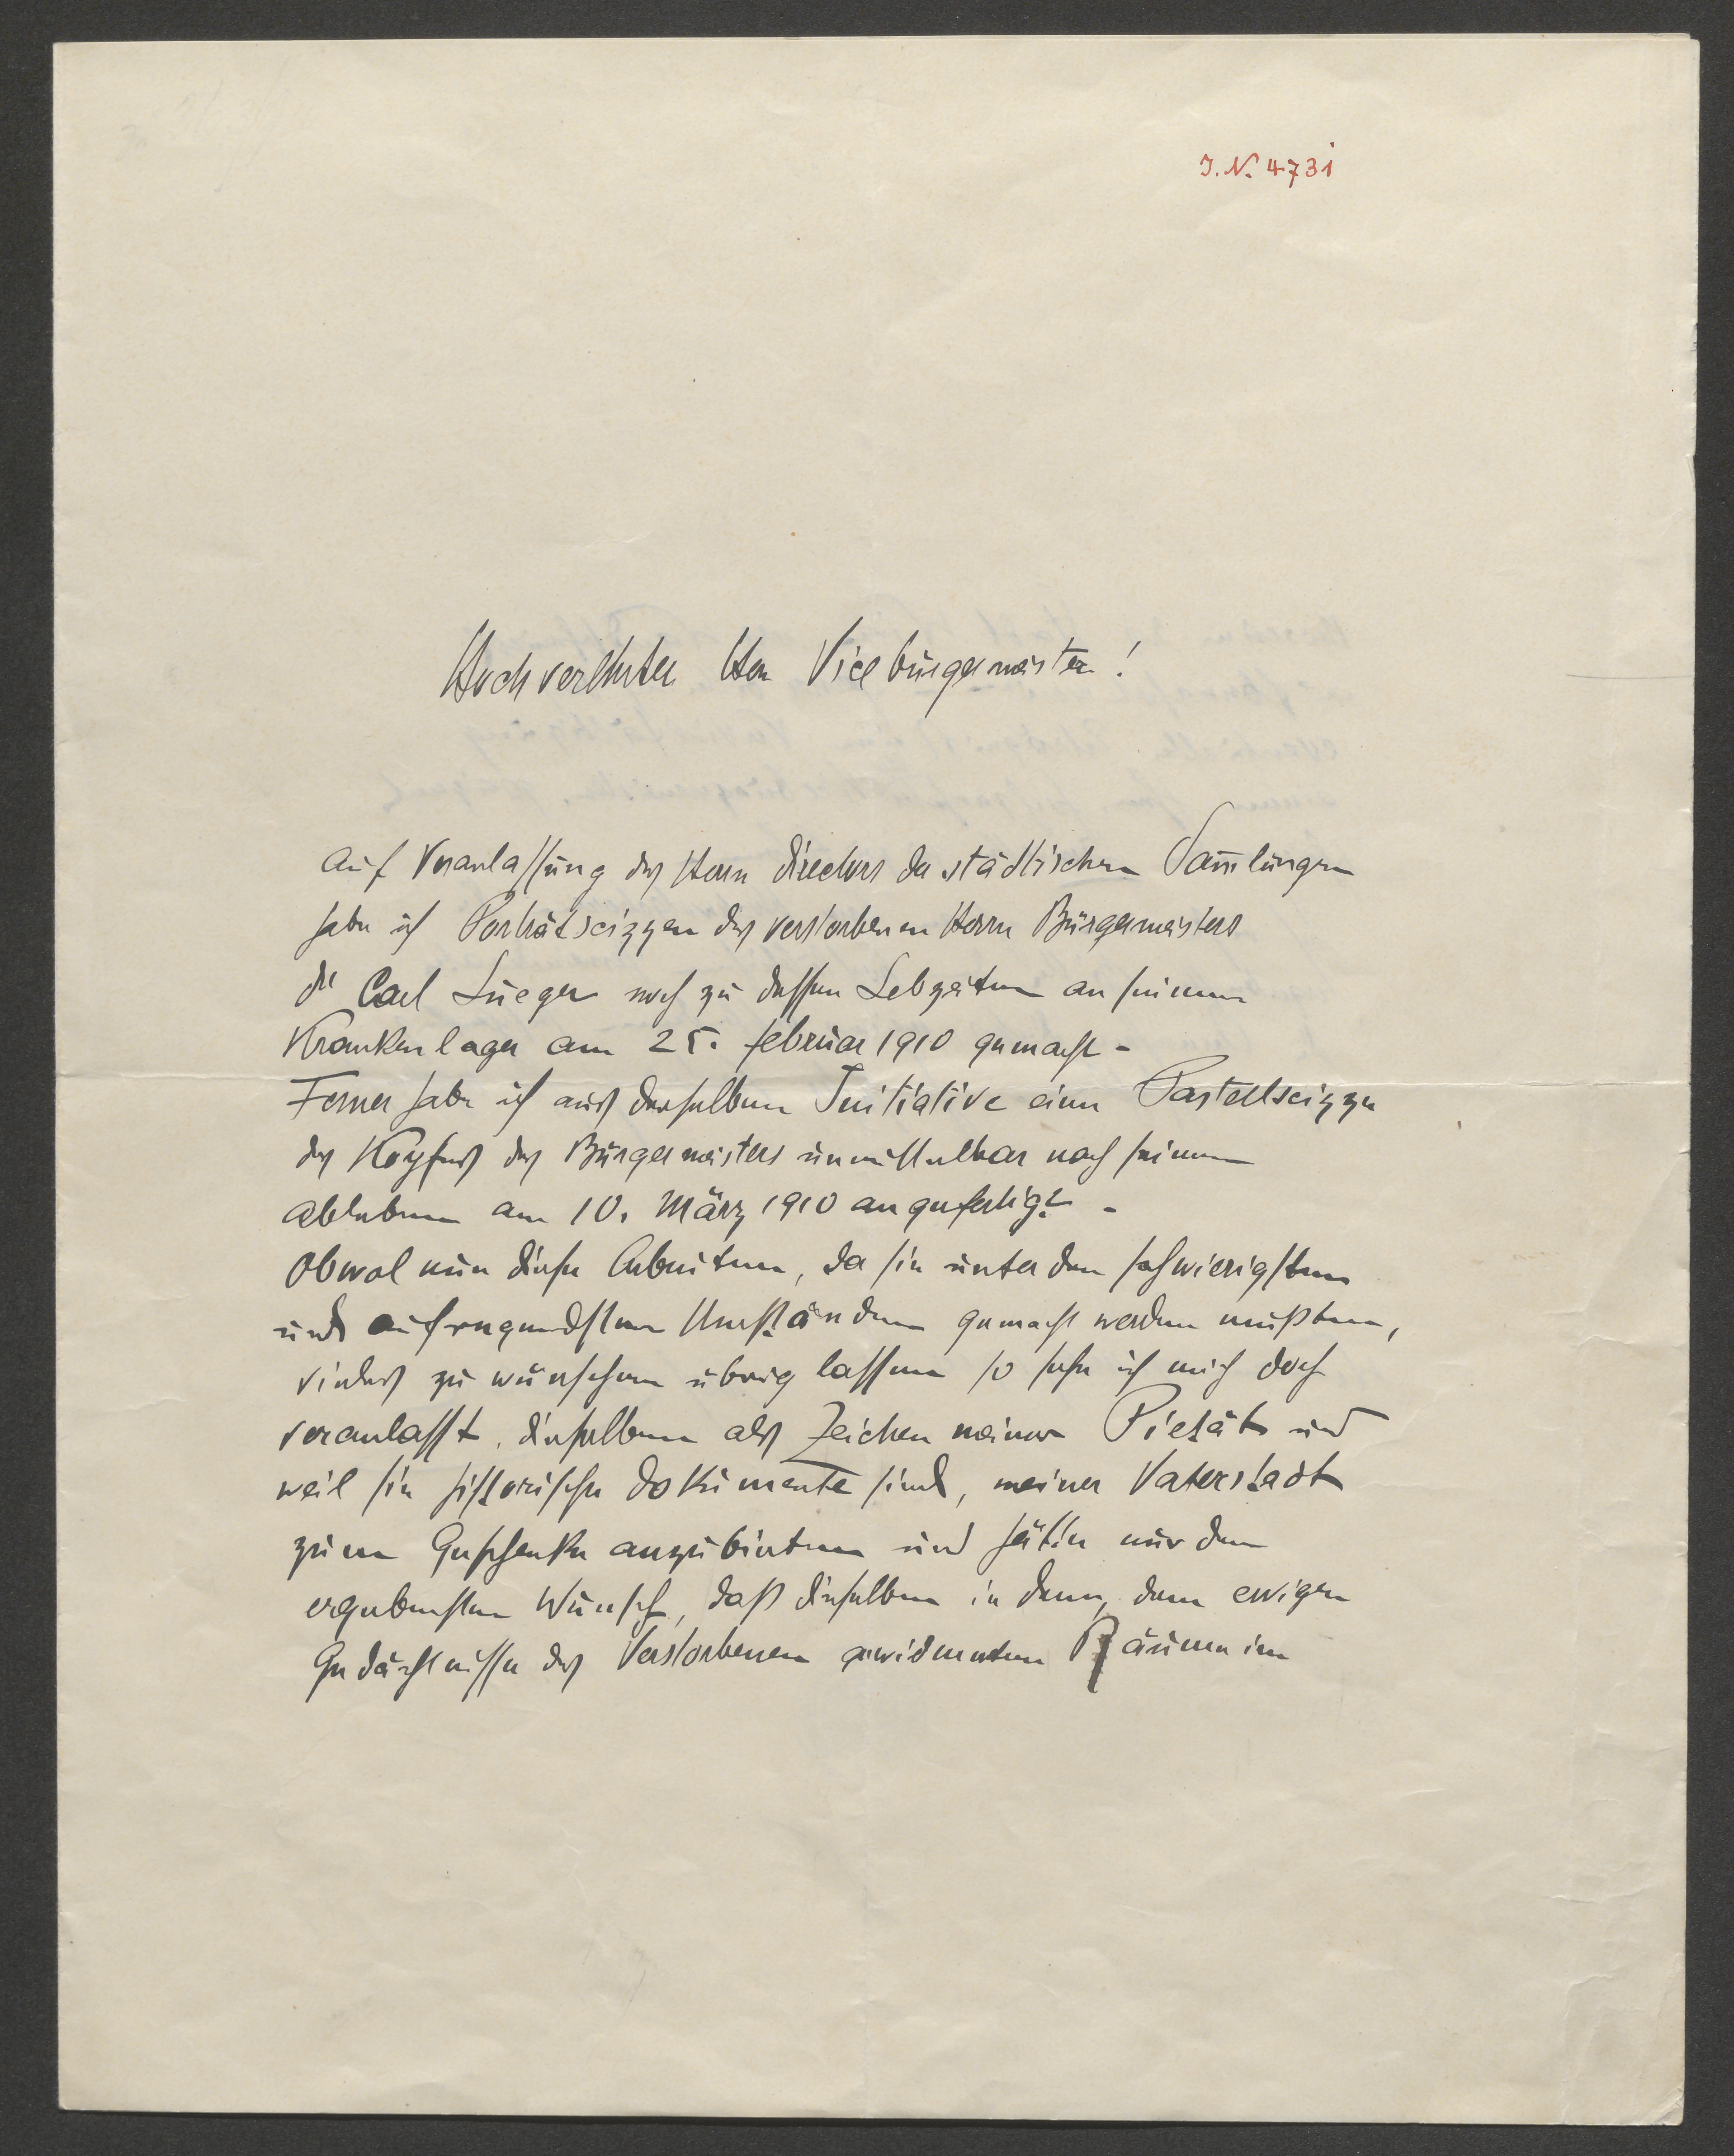 I. N. 4731
Hochverehrter Herr Vicebürgermeister!
Auf Veranlassung des Herrn Directors der städtischen Sam̄lungen
habe ich Porträtscizzen des verstorbenen Herrn Bürgermeisters
Dr Carl Lueger noch zu dessen Lebzeiten an seinem
Krankenlager am 25. Februar 1910 gemacht –
Ferner habe ich aus derselben Initiative eine Pastellscizze
des Kopfes des Bürgermeisters unmittelbar nach seinem
Ableben am 10. März 1910 angefertigt –
Obwol nun diese Arbeiten, da sie unter den schwierigsten
und aufregendsten Umständen gemacht werden mußten,
vieles zu wünschen übrig lassen so sehe ich mich doch
veranlasst, dieselben als Zeichen meiner Pietät und
weil sie historische Dokumente sind, meiner Vaterstadt
zum Geschenke anzubieten und hätte nur den
ergebensten Wunsch, daß dieselben in dem, dem ewigen
Gedächtnisse des Verstorbenen gewidmeten Räume im